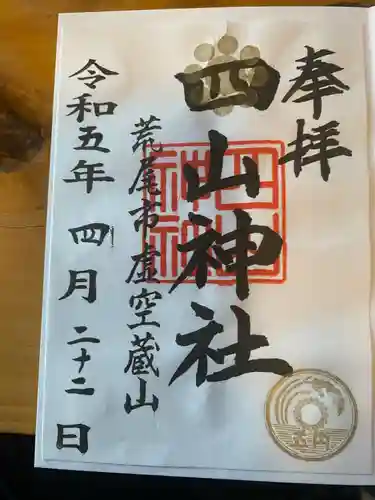 奉拝
四山神社
荒尾市虚空蔵山
令和五年四月二十二日
四山神社
五円